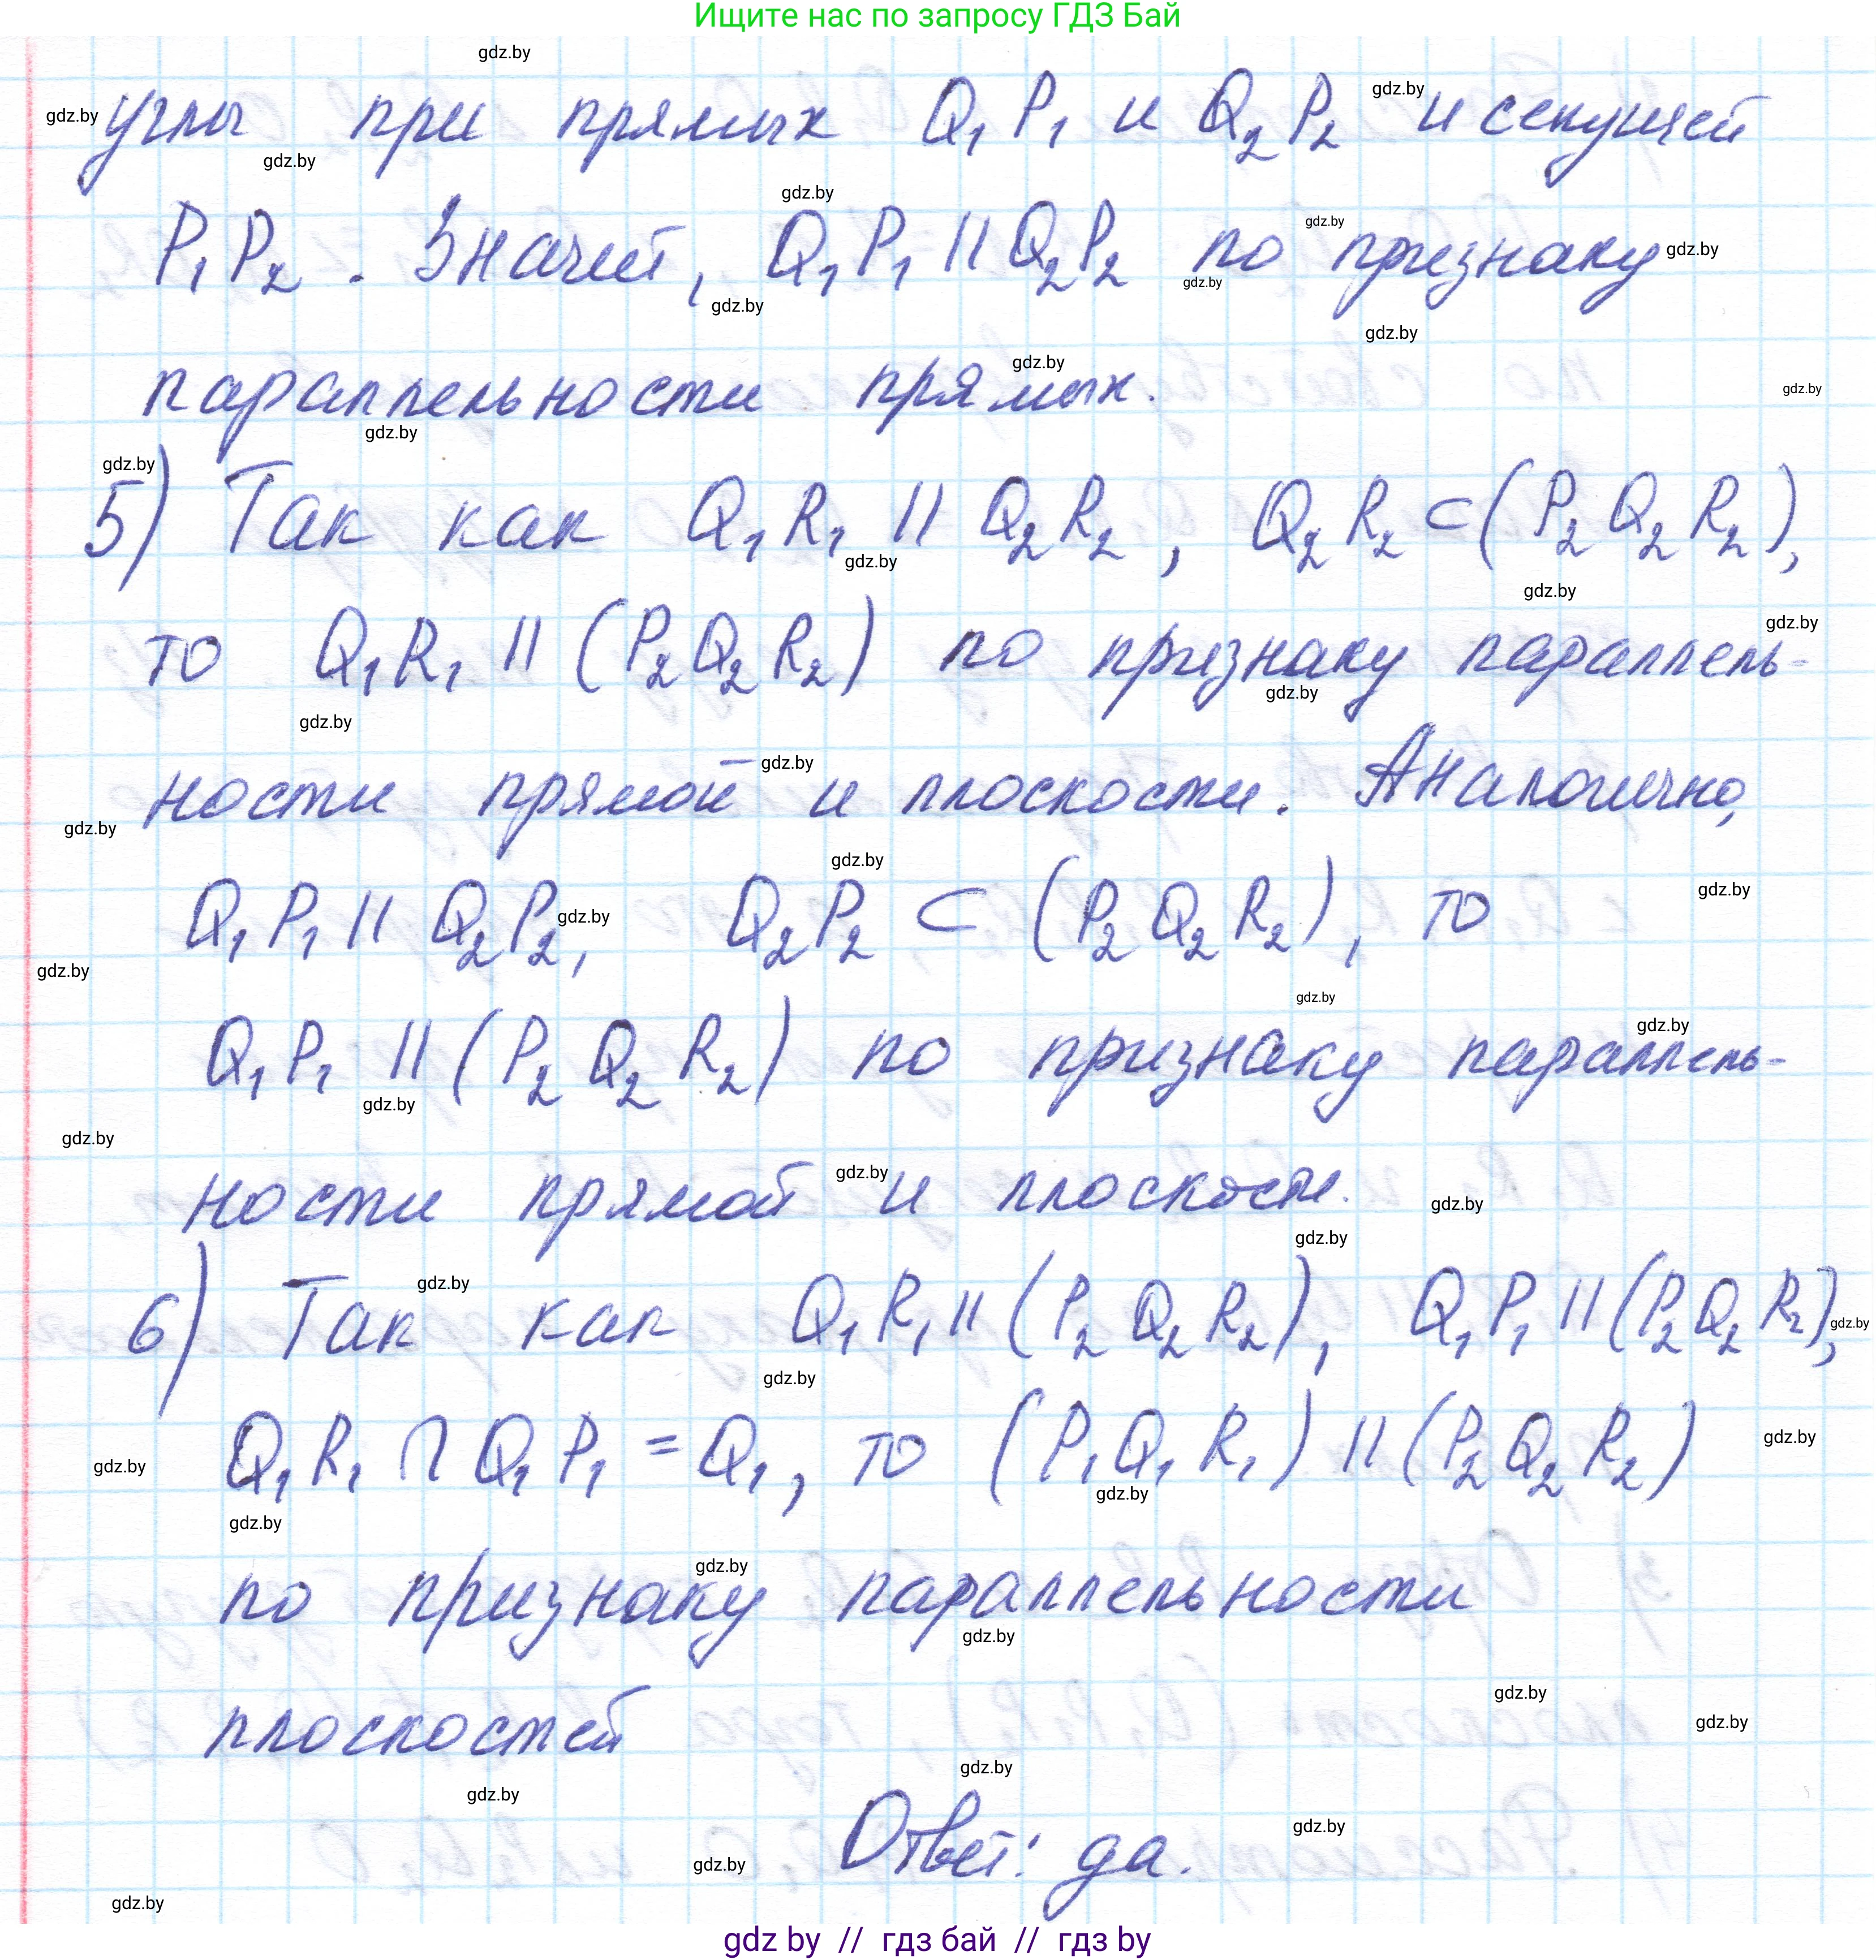 Ищите нас по запросу ГДЗ Бай
углы при прямых Q₁P₁ и Q₂P₂ и секущей
P₁P₂. Значит, Q₁P₁ || Q₂P₂ по признаку
параллельности прямых.
5) Так как Q₁R₁ || Q₂R₂, Q₂R₂ ⊂ (P₂Q₂R₂),
то Q₁R₁ || (P₂Q₂R₂) по признаку параллель-
ности прямой и плоскости. Аналогично,
Q₁P₁ || Q₂P₂, Q₂P₂ ⊂ (P₂Q₂R₂), то
Q₁P₁ || (P₂Q₂R₂) по признаку параллель-
ности прямой и плоскости.
6) Так как Q₁R₁ || (P₂Q₂R₂), Q₁P₁ || (P₂Q₂R₂),
Q₁R₁ ∩ Q₁P₁ = Q₁, то (P₁Q₁R₁) || (P₂Q₂R₂)
по признаку параллельности
плоскостей
Ответ: да.
gdz by // гдз бай // гдз by